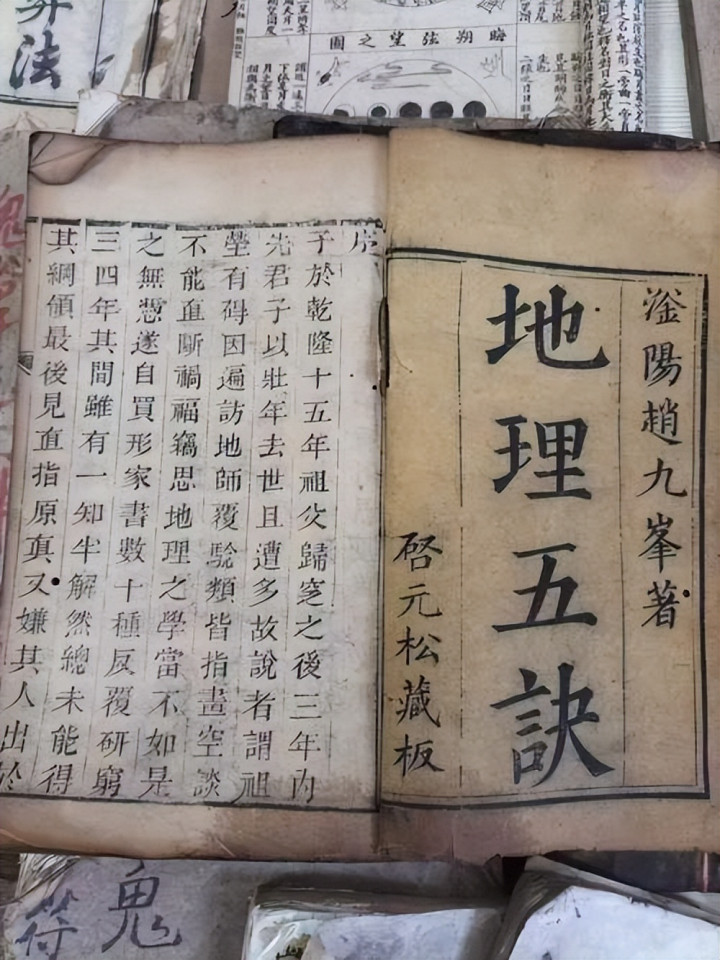 晦朔弦望之圖
法
滏陽趙九峯著
地理五訣
啓元松藏板
序
予於乾隆十五年祖父歸窆之後三年內
先君子以壯年去世且遭多故說者謂祖
塋有碍因遍訪地師覆驗類皆指畫空談
不能直斷禍福竊思地理之學當不如是
之無憑遂自買形家書數十種反覆研窮
三四年其間雖有一知半解然總未能得
其綱領最後見直指原真又嫌其人出於
鬼
符